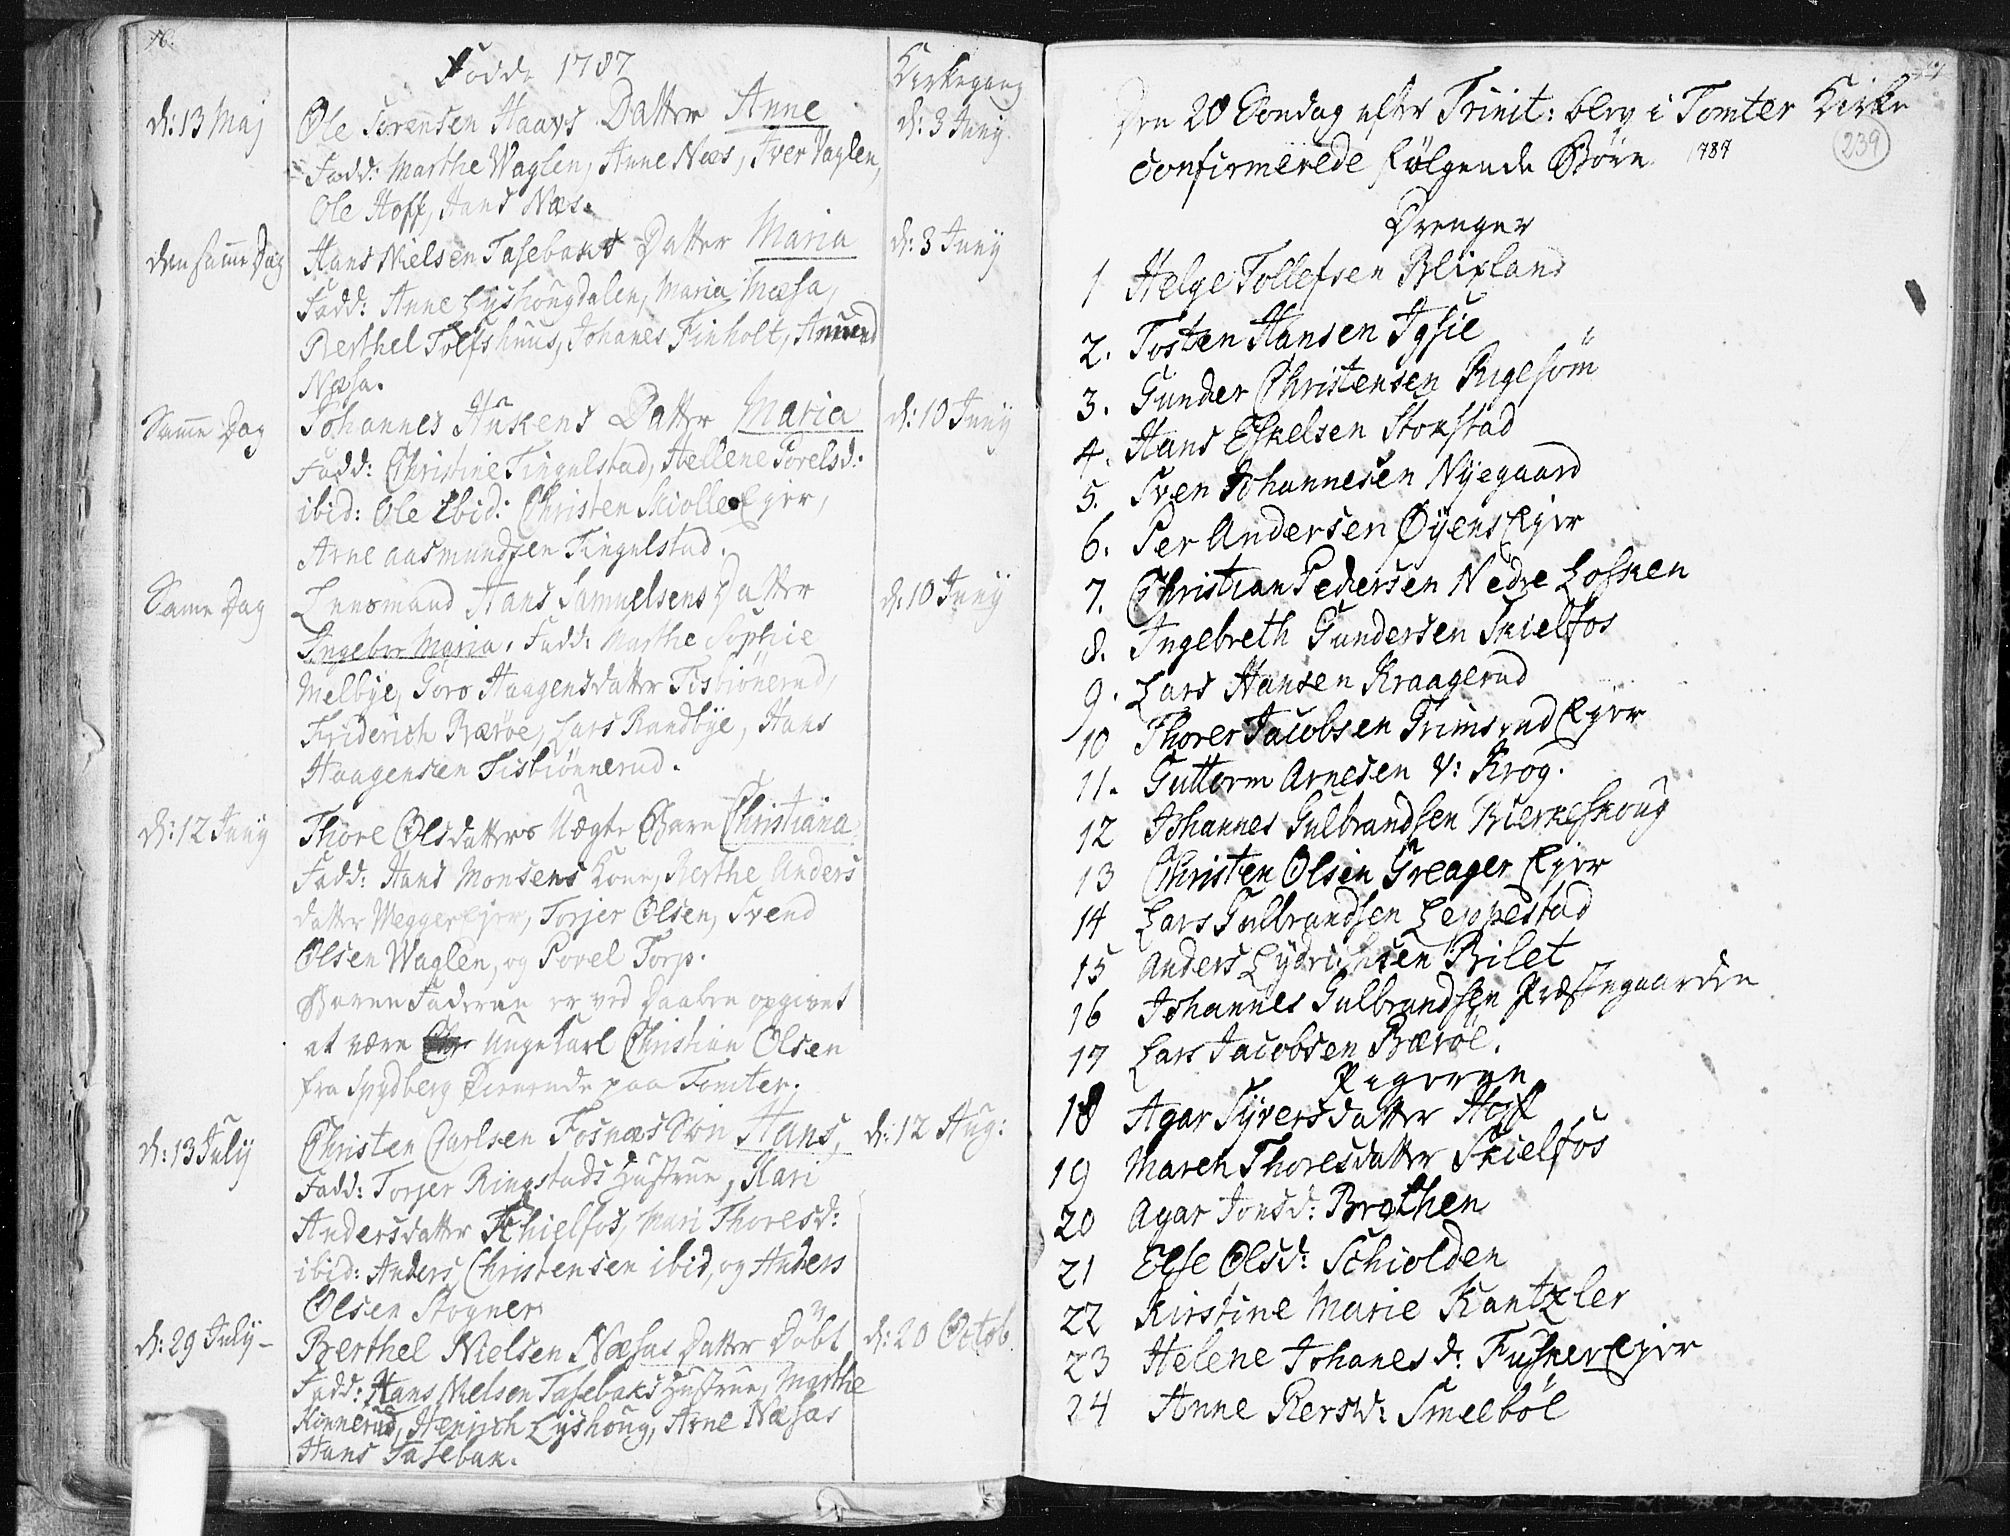 16.
Fødde 1787
Kirkegang
d: 13 Maj
Ole Sørensen Haavs Datter Anne
d: 3 Juny
Fadd: Marthe Waglen, Anne Næs, Iver Vaglen,
Ole Hoff, Hans Næs.
den same Dag
Hans Nielsen Tasebaks Datter Maria
d: 3 Juny
Fadd: Anne Lyshougdalen, Maria Mæsa,
Berthel Tolfshuus, Johanes Finholt, Amund
Næsa.
Same Dag
Johannes Hukens Datter Maria
d: 10 Juny
Fadd: Christine Tingulstad, Hellene Povelsd:
ibid: Ole Ibid: Christen Skiolle Ejer,
Arne Aasmundsen Tingulstad.
Same Dag
Lensmand Hans Samuelsens Datter
d: 10 Juny
Ingebor Maria. Fadd: Marthe Sophie
Melbye, Goro Haagensdatter Fisbiönerud,
Friderich Bærøe, Lars Randbye, Hans
Haagensen Fisbiönnerud.
d: 12 Juny
Thore Olsdatters Uægte Barn Christiana
Fadd: Hans Monsens Kone, Berthe Anders
datter Wegger Ejer, Torjer Olsen, Svend
Olsen Waglen, og Povel Torp.
Barne Faderen er ved Daaben opgivet
at være Unge Karl Christian Olsen
fra Spydberg tienende paa Tomter.
d: 13 July
Christen Carlsen Fosnæs Søn Hans,
d: 12 Aug:
Fadd: Torjer Ringstads Hustrue, Kari
Andersdatter Schielfos, Mari Thoresd:
ibid: Anders Christensen ibid, og Anders
Olsen Stogner
d: 29 July
Berthel Nielsen Næsas Datter Döbt
d: 20 Octob.
Fadd: Hans Nielsen Tasebaks Hustrue, Marthe
Kinnerud, Henrich Lyshoug, Arne Næsas
Hans Tasebak.
Den 20 Söndag efter Trinit: blev i Tomter Kirke
confirmerede følgende Børn 1787
239
Drenger
1 Helge Tollefsen Blixland
2. Tosten Hansen Igsie
3. Gunder Christensen Rigesöm
4. Hans Eskelsen Stokstad
5. Sven Johannesen Nyegaard
6. Per Andersen Øyens Ejer
7. Christian Pedersen Nedre Løsken
8. Ingebreth Gundersen Skielfos
9. Lars Hansen Kraagerud
10 Thorer Jacobsen Grimsrud Ejer
11. Guttorm Arnesen v: Krog.
12 Johannes Gulbrandsen Bierkeskoug
13 Christen Olsen Greager Ejer
14 Lars Gulbrandsen Leppestad
15 Anders Lydrichsen Bilet
16 Johannes Gulbrandsen Præstegaarden
17 Lars Jacobsen Bæröe.
Pigerne
18 Agar Syversdatter Hoff
19 Maren Thoresdatter Skielfos
20 Agar Jonsd: Brothen
21 Else Olsd: Schiolden
22 Kirstine Marie Kantzler
23 Helene Johanes d: Fusker Ejer
24 Anne Persd: Smeeböl